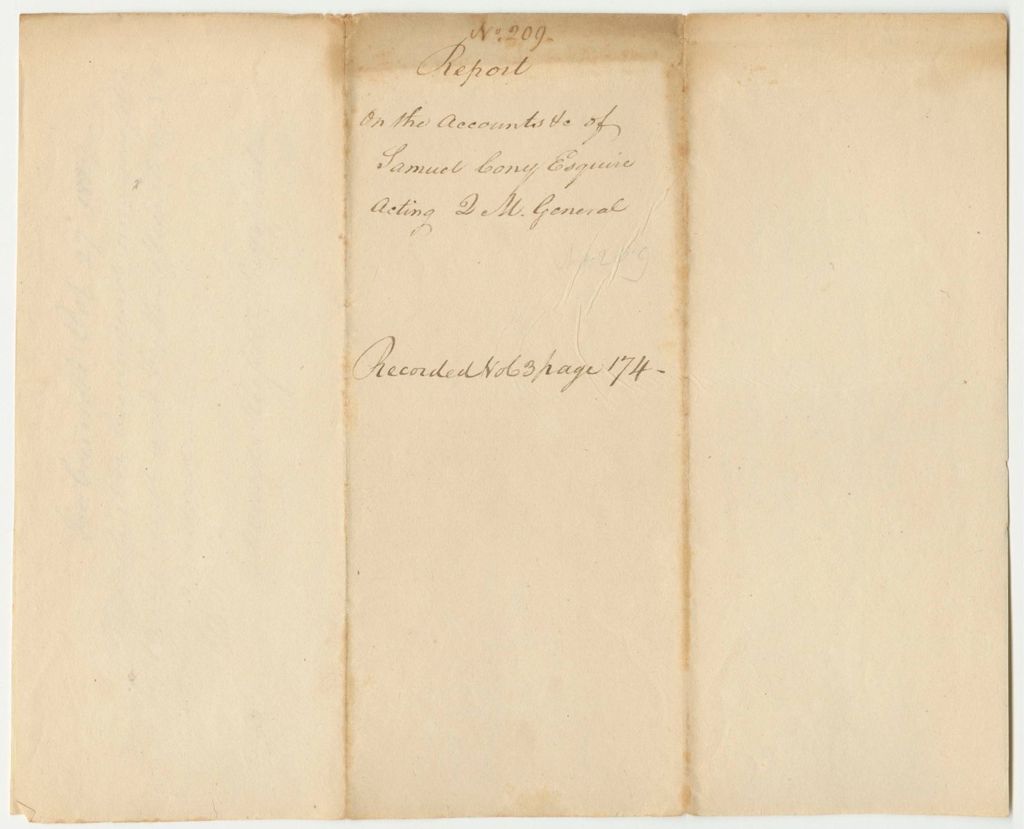 No. 209.
Report
On the Accounts &c of
Samuel Cony Esquire
Acting Q M. General
Recorded Vol 3 page 174-